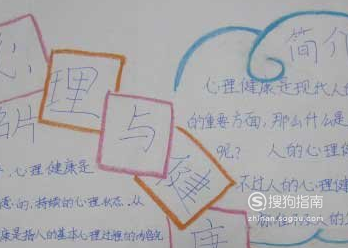 心
理
与
健
康
简介
心理健康是现代人
的重要方面,那么什么是
呢? 人的心理健
不过人的心理健
卡片
,心理健康是
的,持续的心理状态.从
康是指人的基本心理过程的内容完
搜狗指南
zhinan.sogou.com